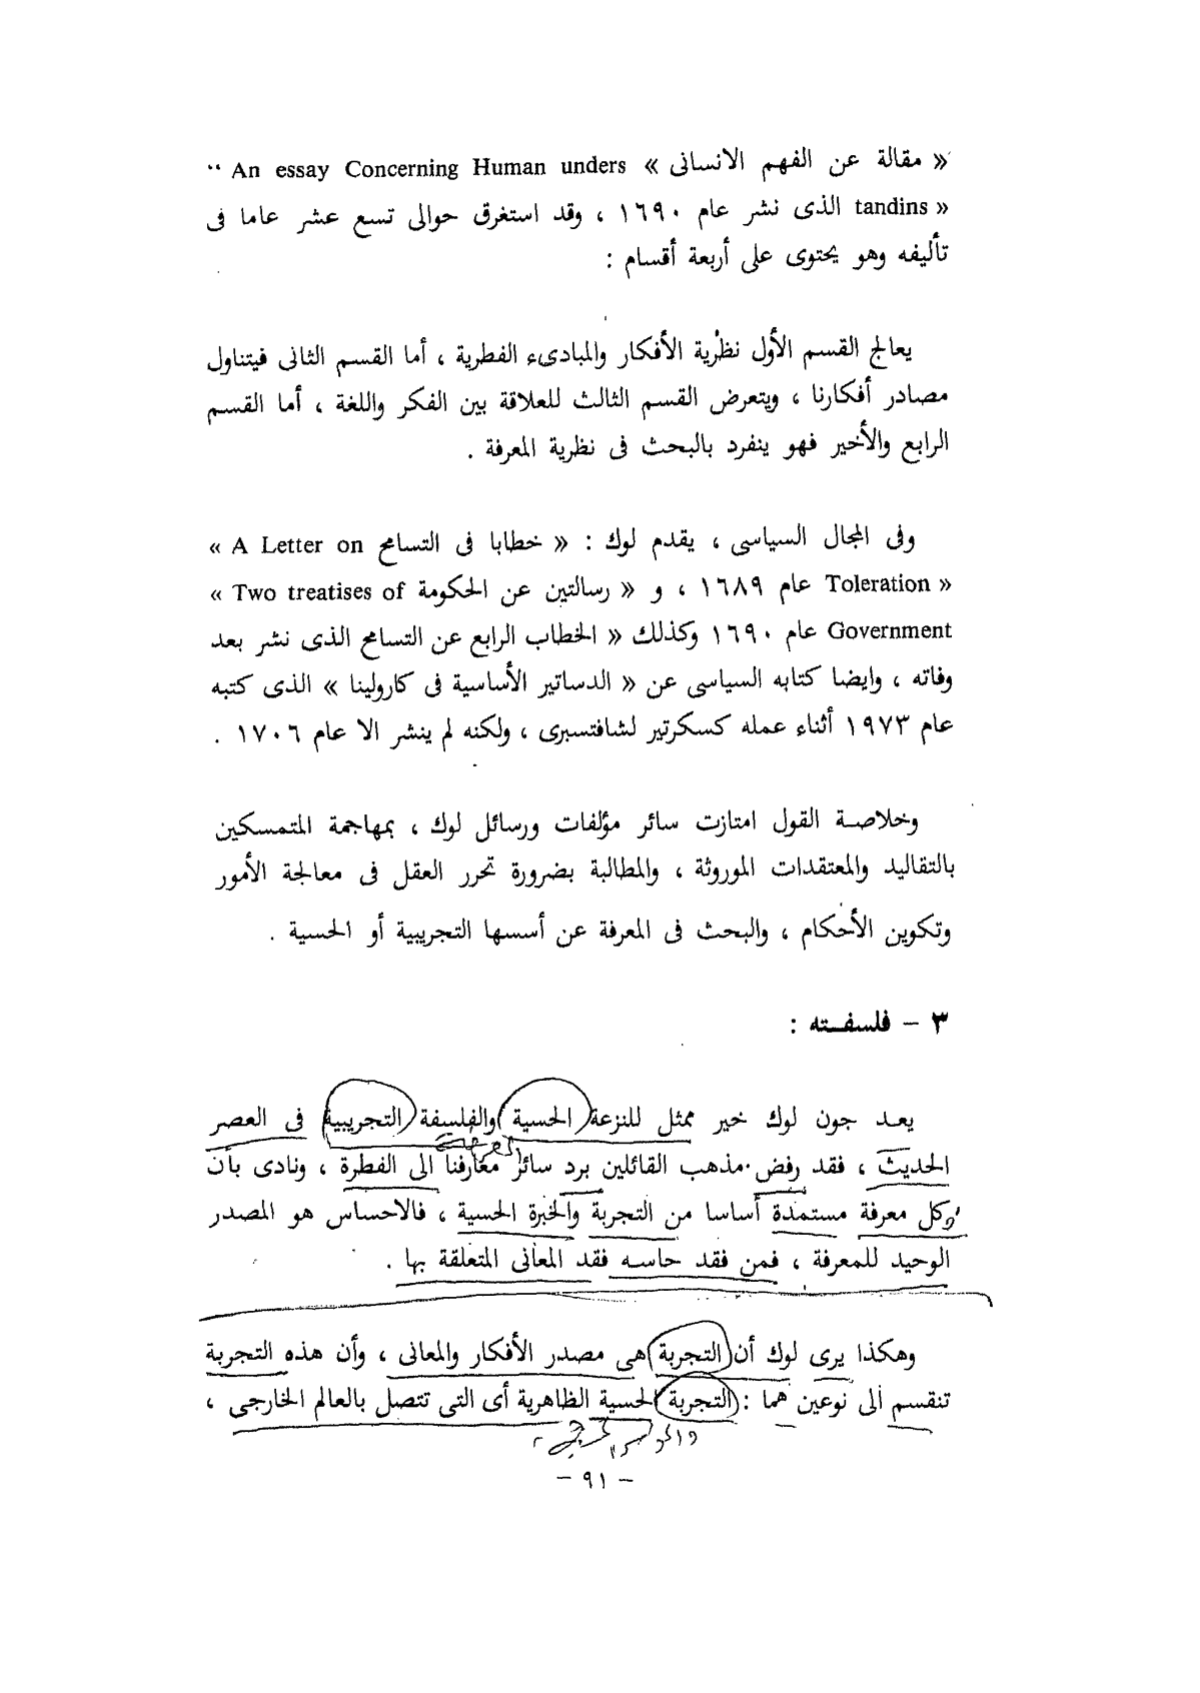 « مقالة عن الفهم الانسانى » An essay Concerning Human unders “
« tandins الذى نشر عام ١٦٩٠ ، وقد استغرق حوالى تسع عشر عاما فى
تأليفه وهو يحتوى على أربعة أقسام :
يعالج القسم الأول نظرية الأفكار والمبادىء الفطرية ، أما القسم الثانى فيتناول
مصادر أفكارنا ، ويتعرض القسم الثالث للعلاقة بين الفكر واللغة ، أما القسم
الرابع والأخير فهو ينفرد بالبحث فى نظرية المعرفة .
وفى المجال السياسى ، يقدم لوك : « خطابا فى التسامح A Letter on »
« Toleration عام ١٦٨٩ ، و « رسالتين عن الحكومة Two treatises of »
Government عام ١٦٩٠ وكذلك « الخطاب الرابع عن التسامح الذى نشر بعد
وفاته ، وايضا كتابه السياسى عن « الدساتير الأساسية فى كارولينا » الذى كتبه
عام ١٩٧٣ أثناء عمله كسكرتير لشافتسبرى ، ولكنه لم ينشر الا عام ١٧٠٦ .
وخلاصة القول امتازت سائر مؤلفات ورسائل لوك ، بمهاجمة المتمسكين
بالتقاليد والمعتقدات الموروثة ، والمطالبة بضرورة تحرر العقل فى معالجة الأمور
وتكوين الأحكام ، والبحث فى المعرفة عن أسسها التجريبية أو الحسية .
٣ – فلسفته :
يعد جون لوك خير ممثل للنزعة الحسية والفلسفة التجريبية فى العصر
الحديث ، فقد رفض مذهب القائلين برد سائر معارفنا الى الفطرة ، ونادى بأن
وكل معرفة مستمدة أساسا من التجربة والخبرة الحسية ، فالاحساس هو المصدر
الوحيد للمعرفة ، فمن فقد حاسه فقد المعانى المتعلقة بها .
وهكذا يرى لوك أن التجربة هى مصدر الأفكار والمعانى ، وأن هذه التجربة
تنقسم الى نوعين هما : التجربة الحسية الظاهرية أى التى تتصل بالعالم الخارجى ،
– ٩١ –